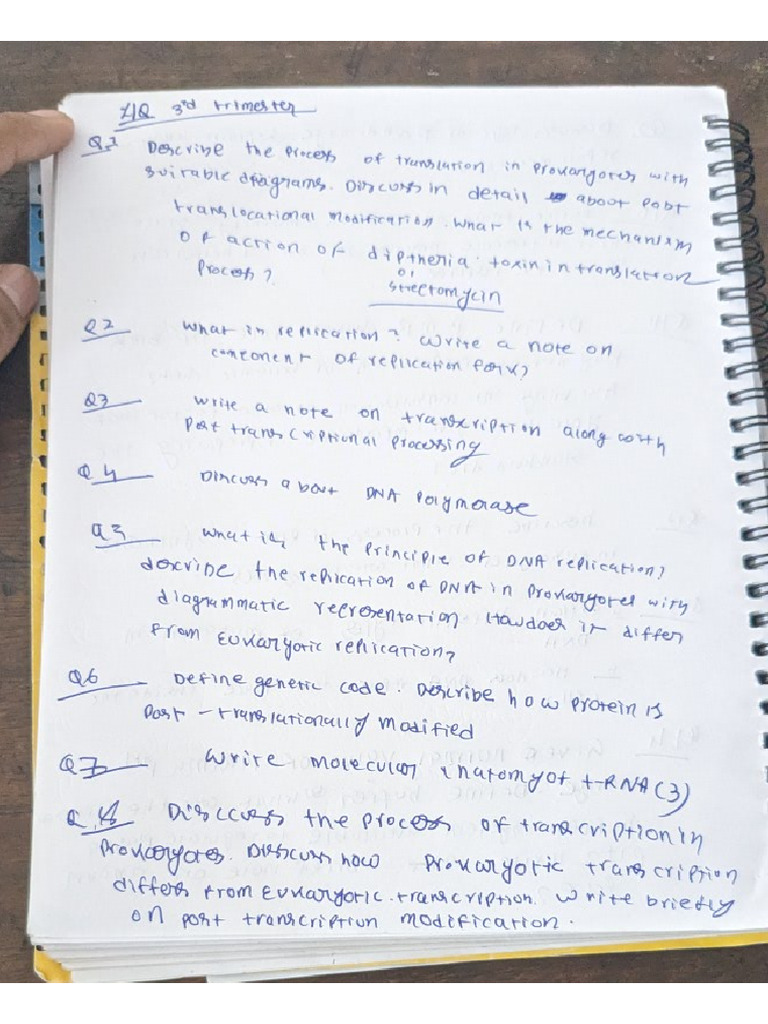 LIQ 3rd trimester
Q.1 Describe the process of translation in prokaryotes with
suitable diagrams. Discuss in detail about post
translocational modification. What is the mechanism
of action of diptheria toxin in translation
process? or
Strectomycin
Q2 What in replication? Write a note on
conponent of replication fork?
Q3 Write a note on transcription along with
Post transcriptional processing
Q4 Discuss about DNA Polymerase
Q5 What is the principle of DNA replication?
describe the replication of DNA in prokaryotes with
diagrammatic representation How does it differ
from eukaryotic replication?
Q6 Define genetic code. Describe how protein is
post-translationally modified
Q7 Write molecular anatomy of t-RNA (3)
Q.8 Disccuss the process of transcription in
prokaryotes. Discuss how prokaryotic transcription
differs from eukaryotic transcription. Write briefly
on post transcription modification.